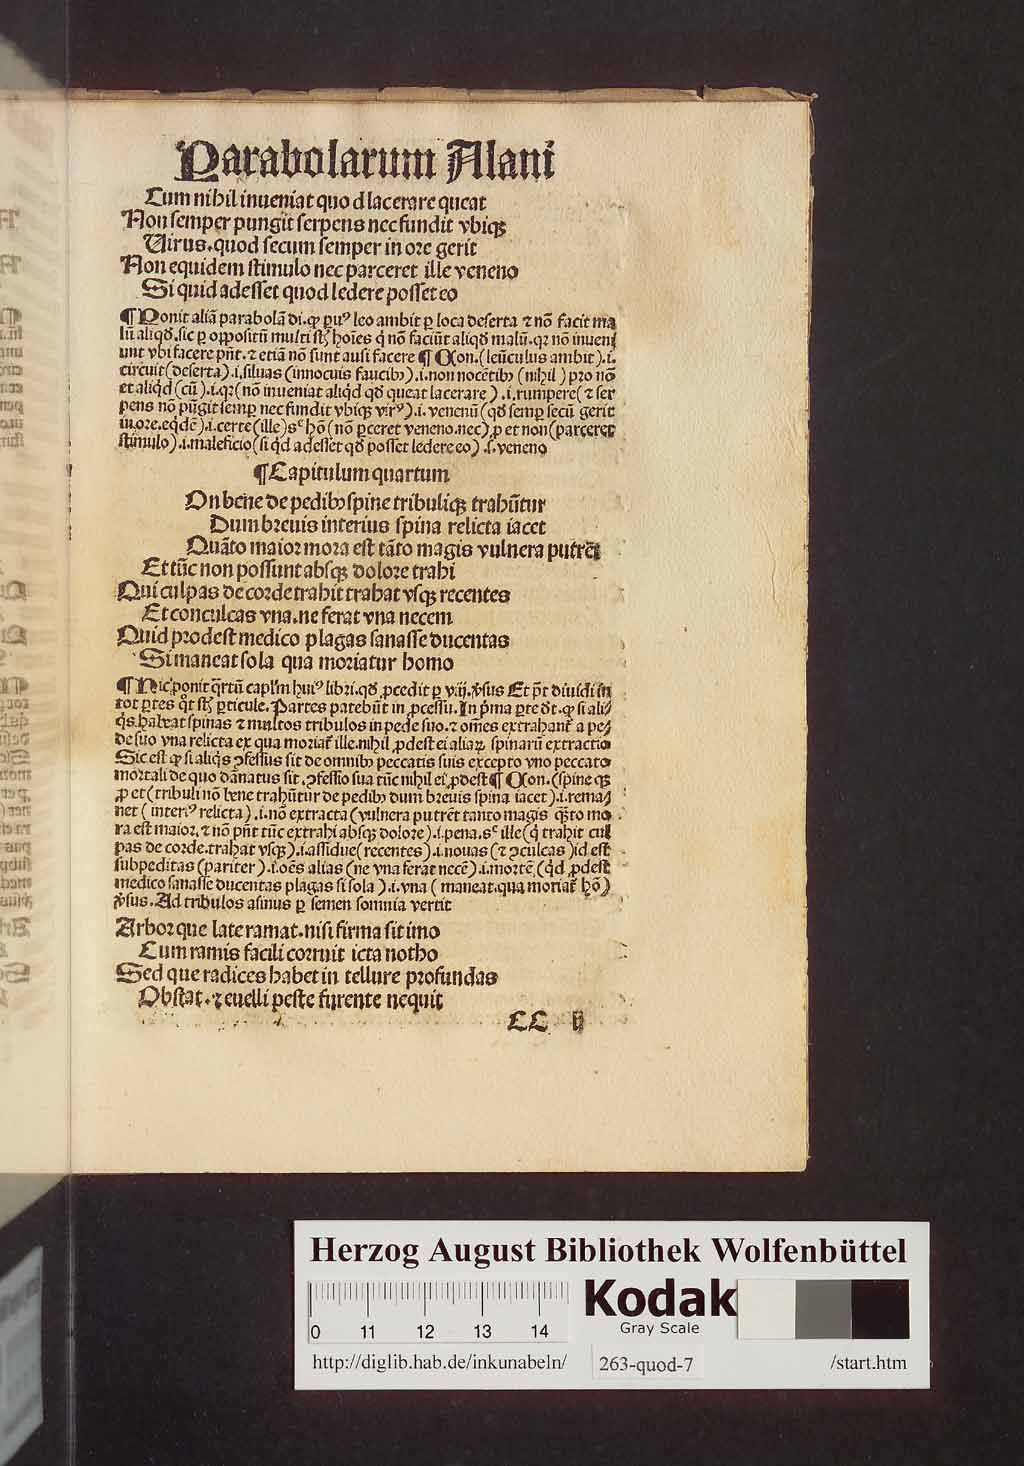 Parabolarum Alani
Cum nihil inueniat quod lacerare queat
Non semper pungit serpens nec fundit vbiqꝫ
Uirus.quod secum semper in ore gerit
Non equidem stimulo nec parceret ille veneno
Si quid adesset quod ledere posset eo
¶ Ponit aliā parabolā di.ꝙ ꝑuꝰ leo ambit ꝑ loca deserta ⁊ nō facit ma
lū aliqđ.sic ꝑ oppositū multi st̄ hoīes q̇ nō faciūt aliqđ malū.qꝛ nō inueni
unt vbi facere pn̄t.⁊ etiā nō sunt ausi facere ¶ Con.(leūculus ambit).i.
circuit(deserta).i.siluas(innocuis faucibꝰ).i.non nocētibꝰ(nihil) pro nō
et aliq̇d(cū).i.qꝛ(nō inueniat aliq̇d qđ queat lacerare).i.rumpere(⁊ ser
pens nō pūgit semꝑ nec fundit vbiqꝫ virꝰ).i.venenū(qđ semꝑ secū gerit
in ore.eq̇dē).i.certe(ille)sᶜ hō(nō ꝑceret veneno.nec) ꝓ et non(parceret
stimulo).i.maleficio(si q̇d adesset qđ posset ledere eo).s.veneno
¶Capitulum quartum
On bene de pedibꝰ spine tribuliqꝫ trahūtur
Dum breuis interius spina relicta iacet
Quāto maior mora est tāto magis vulnera putrēt
Et tūc non possunt absqꝫ dolore trahi
Qui culpas de corde trahit trahat vsqꝫ recentes
Et conculcas vna.ne ferat vna necem
Quid prodest medico plagas sanasse ducentas
Si maneat sola qua moriatur homo
¶ Hic ponit q̄rtū capl'm huiꝰ libri.qđ ꝓcedit ꝑ viij.v̄sus Et pn̄t diuidi in
tot ꝑtes q̊t st̄ ꝑticule.Partes patebūt in ꝓcessu.In p̄ma ꝑte đt.ꝙ si ali⸗
q̇s habeat spinas ⁊ multos tribulos in pede suo.⁊ om̄es extrahant̄ a pe⸗
de suo vna relicta ex qua moriat̄ ille.nihil ꝓdest ei aliaꝝ spinarū extractio
Sic est ꝙ si aliq̇s ꝯfessus sit de omnibꝰ peccatis suis excepto vno peccato
mortali de quo dānatus sit.ꝯfessio sua tūc nihil ei ꝓdest ¶ Con.(spine qꝫ
ꝓ et(tribuli nō bene trahūtur de pedibꝰ dum breuis spina iacet).i.rema⸗
net(interiꝰ relicta).i.nō extracta(vulnera putrēt tanto magis q̄sto mo
ra est maior.⁊ nō pn̄t tūc extrahi absqꝫ dolore).i.pena.sᶜ ille(q̇ trahit cul
pas de corde.trahat vsqꝫ).i.assidue(recentes).i.nouas(⁊ ꝯculcas)id est
subpeditas(pariter).i.oēs alias(ne vna ferat necē).i.mortē(q̇d ꝓdest
medico sanasse ducentas plagas si sola).i.vna(maneat.qua moriat̄ hō)
v̄sus.Ad tribulos asinus ꝑ semen somnia vertit
Arbor que late ramat.nisi firma sit imo
Cum ramis facili corruit icta notho
Sed que radices habet in tellure profundas
Obstat.⁊ euelli peste furente nequit
CC ij
Herzog August Bibliothek Wolfenbüttel
0 11 12 13 14
Kodak
Gray Scale
http://diglib.hab.de/inkunabeln/ 263-quod-7 /start.htm